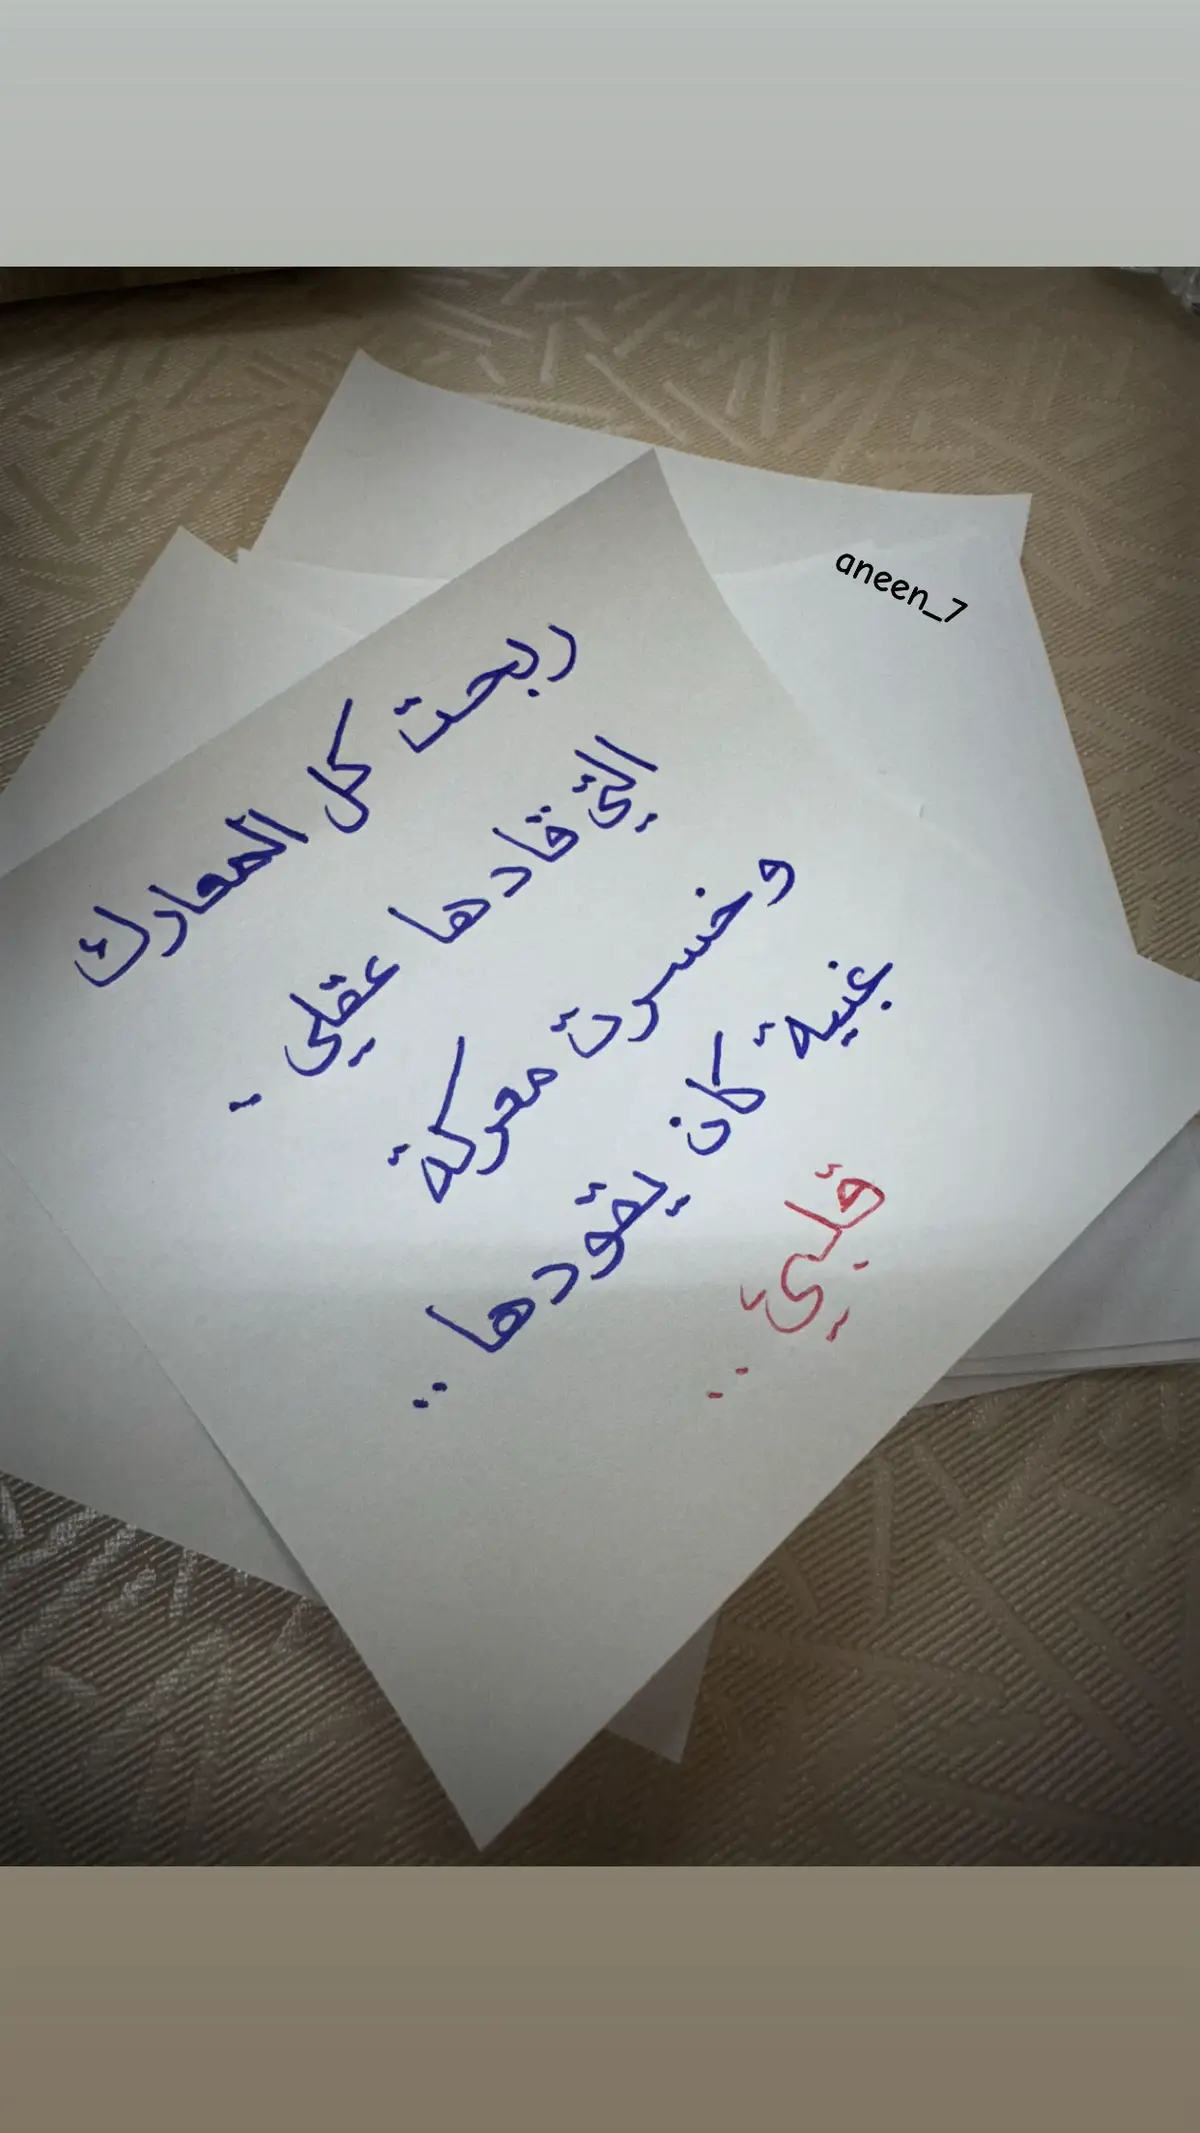 aneen_7
ربحت كل المعارك
التي قادها عقلي .
وخسرت معركة
غبية كان يقودها ..
قلبي ..